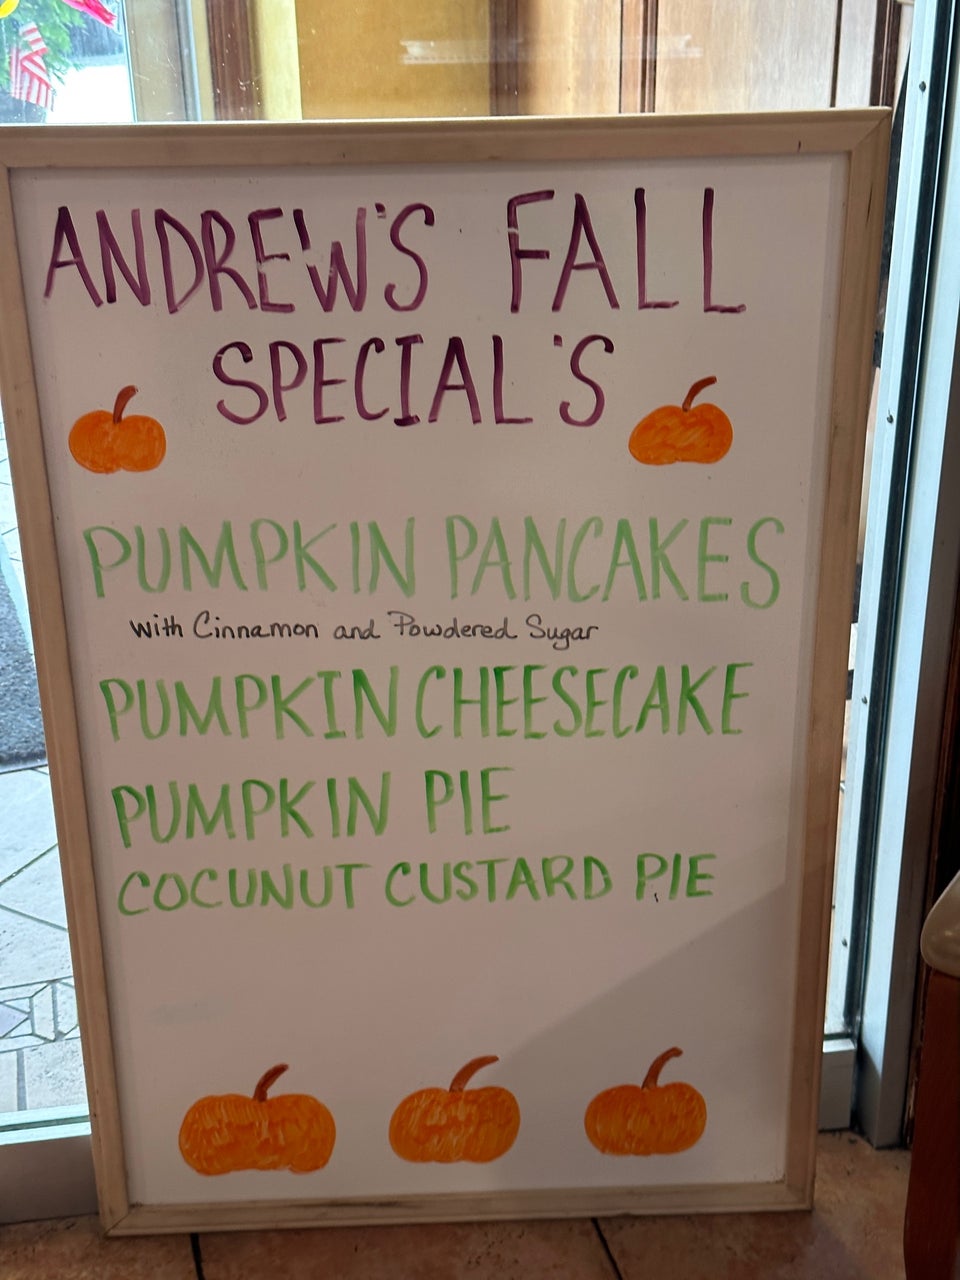 ANDREW'S FALL
SPECIAL'S
PUMPKIN PANCAKES
with Cinnamon and Powdered Sugar
PUMPKIN CHEESECAKE
PUMPKIN PIE
COCUNUT CUSTARD PIE